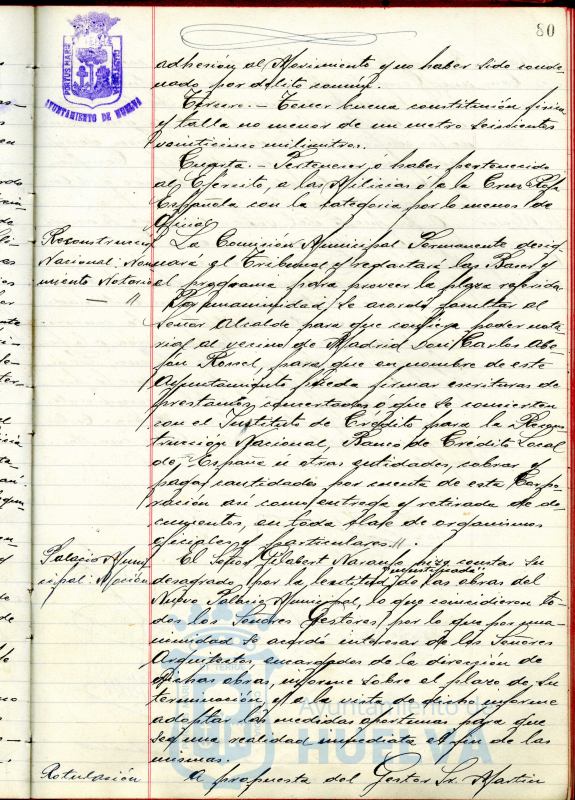 80
PORTUS MARIS
AYUNTAMIENTO DE HUELVA
adhesión al Movimiento y no haber sido conde-
nado por delito común.
Tercero.- Tener buena constitución física
y talla no menor de un metro seiscientos
veinticinco milímetros.
Cuarta.- Pertenecer ó haber pertenecido
al Ejército, a las Milicias ó a la Cruz Roja
Española con la categoría por lo menos de
Oficial.
La Comisión Municipal Permanente desig-
nará el Tribunal y redactará las Bases y
el programa para proveer la plaza referida
Reconstrucción
Nacional: Nom-
miento Notario
Por unanimidad se acordó facultar al
Señor Alcalde para que confiera poder nota-
rial al vecino de Madrid Don Carlos Abe-
jón Rossel, para que en nombre de este
Ayuntamiento pueda firmar escrituras de
prestamos concertados ó que se concierten
con el Instituto de Crédito para la Recons-
trucción Nacional, Banco de Crédito Local
de España ú otras entidades, cobrar y
pagar cantidades por cuenta de esta Corpo-
ración así como entrega y retirada de do-
cumentos, en toda clase de organismos
oficiales y particulares.
Palacio Muni-
cipal: Moción
El Señor Gilabert Naranjo hizo constar su
desagrado, por la lentitud injustificada de las obras del
Nuevo Palacio Municipal, lo que coincidieron to-
dos los Señores Gestores, por lo que por una-
nimidad se acordó interesar de los Señores
Arquitectos encargados de la dirección de
dichas obras, informe sobre el plazo de su
terminación y a la vista de dicho informe
adoptar las medidas oportunas para que
sea una realidad inmediata el fin de las
mismas.
Rotulación
A propuesta del Gestor Sr. Martin
Ayuntamiento de
HUELVA